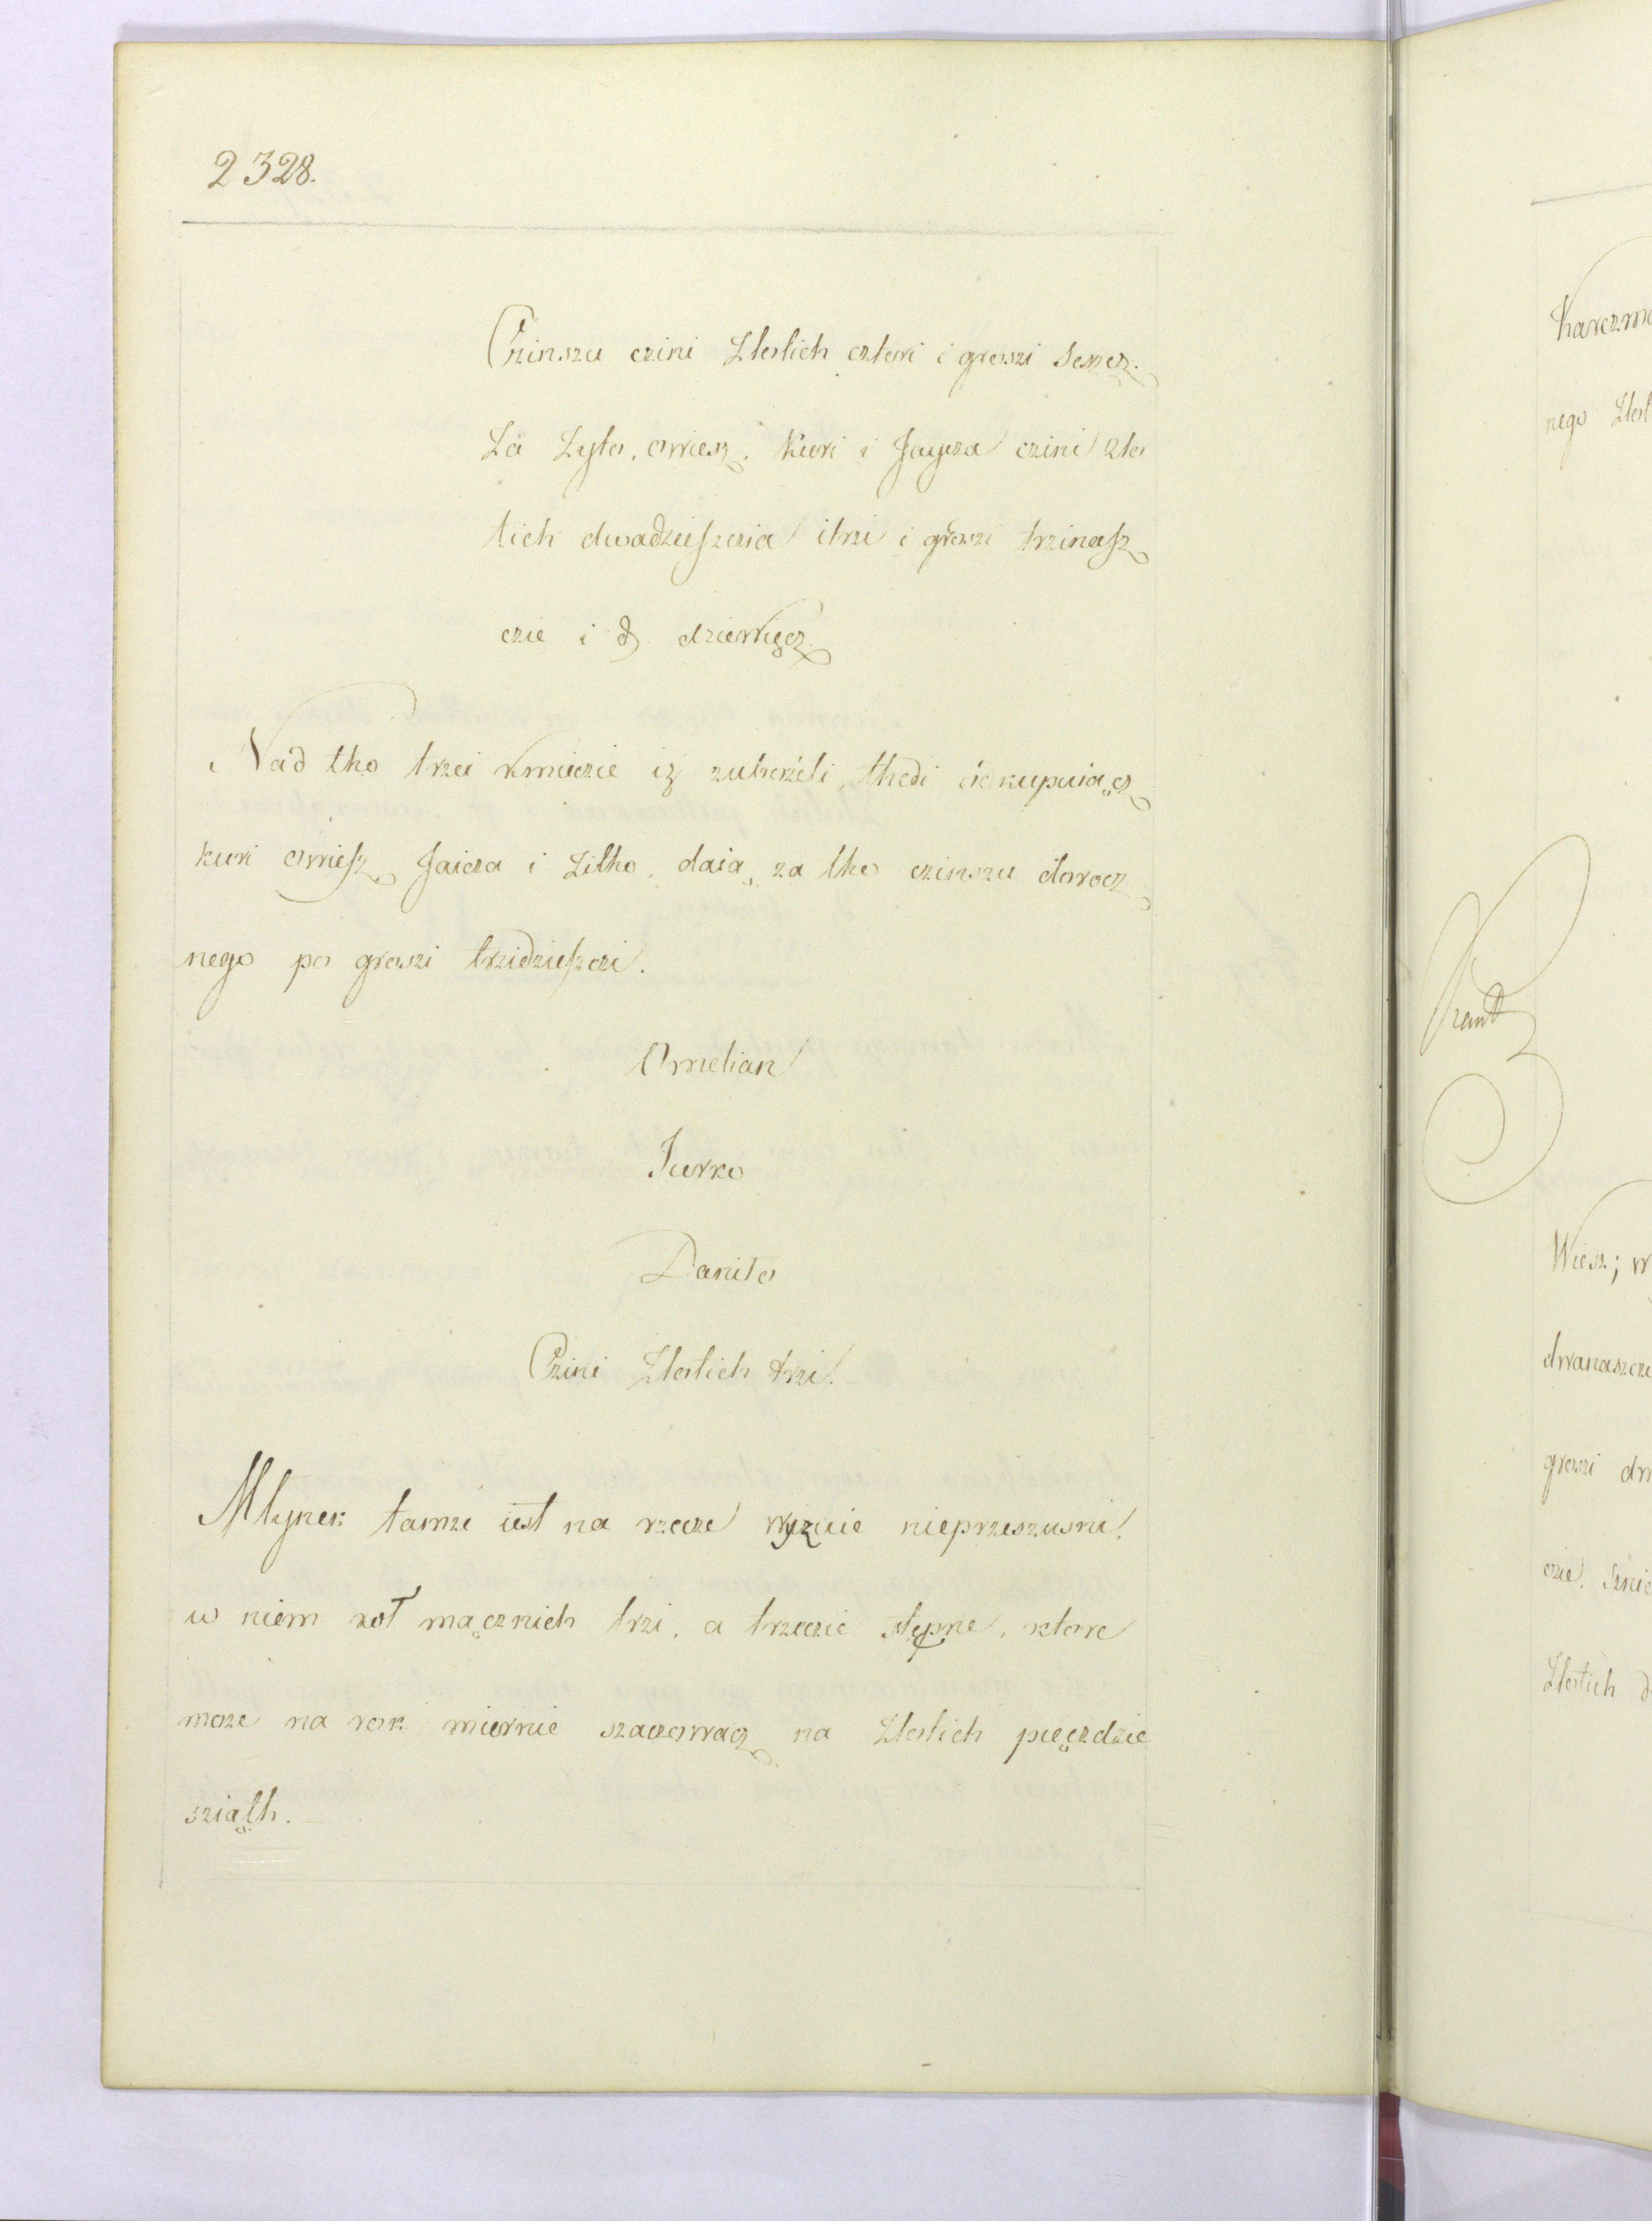 2328.
Czinszu czini Złotich czteri i groszi Seszcz.
Za Zyto, owiesz. Kuri i Jaycza czini zło
tich dwadzieszczia i trzi i groszi trzinasz
czie i d dziewięcz.
Nad tho trzei kmiecie iz zubożeli, thedi ie kupuiącz
kuri owiesz Jaicza i Zitho, daią za tho czinszu dorocz
nego po groszi trzidzieszczi.
Omelian
Jurko
Daniło
Czini Złotich trzi.
Młynek tamże iest na rzecze nieprzeszusni.
w niem kół mącznich trzi, a trzeczie stępne, ktore
może na rok miernie szaczowacz na Złotich pięczdzie
sziąth.
Karczm
nego Złot
Prant
Wiesz; w
dwanaszcze
groszi dw
czie.
Złotich d